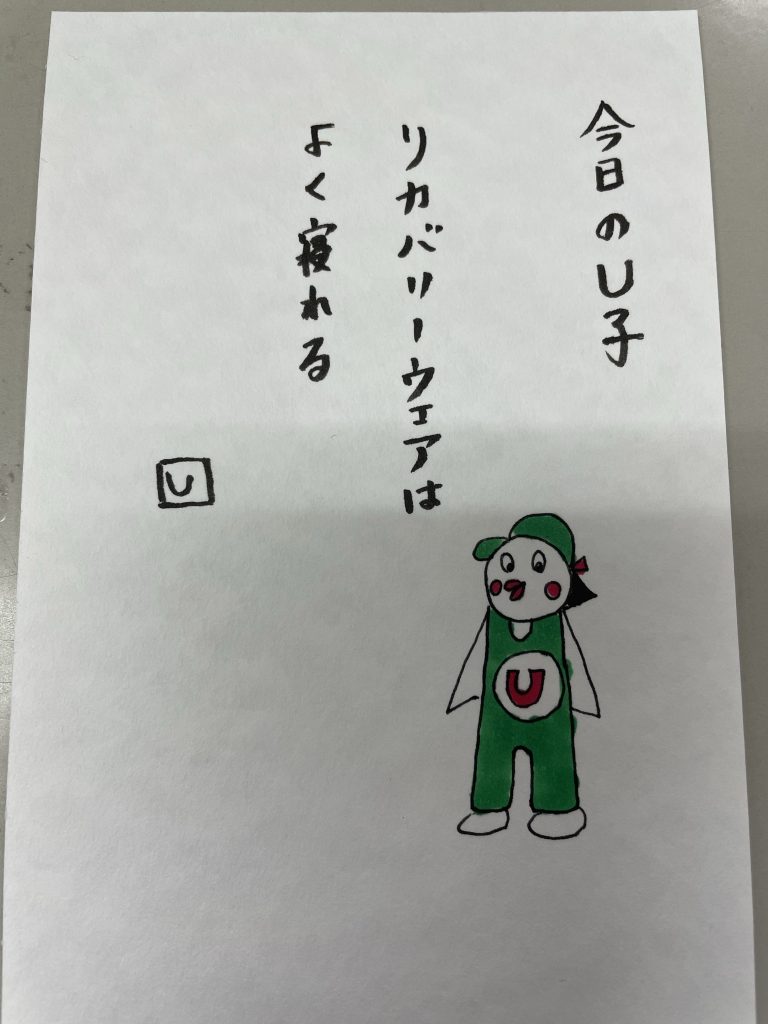 今日のU子
リカバリーウェアは
よく寝れる
U
U